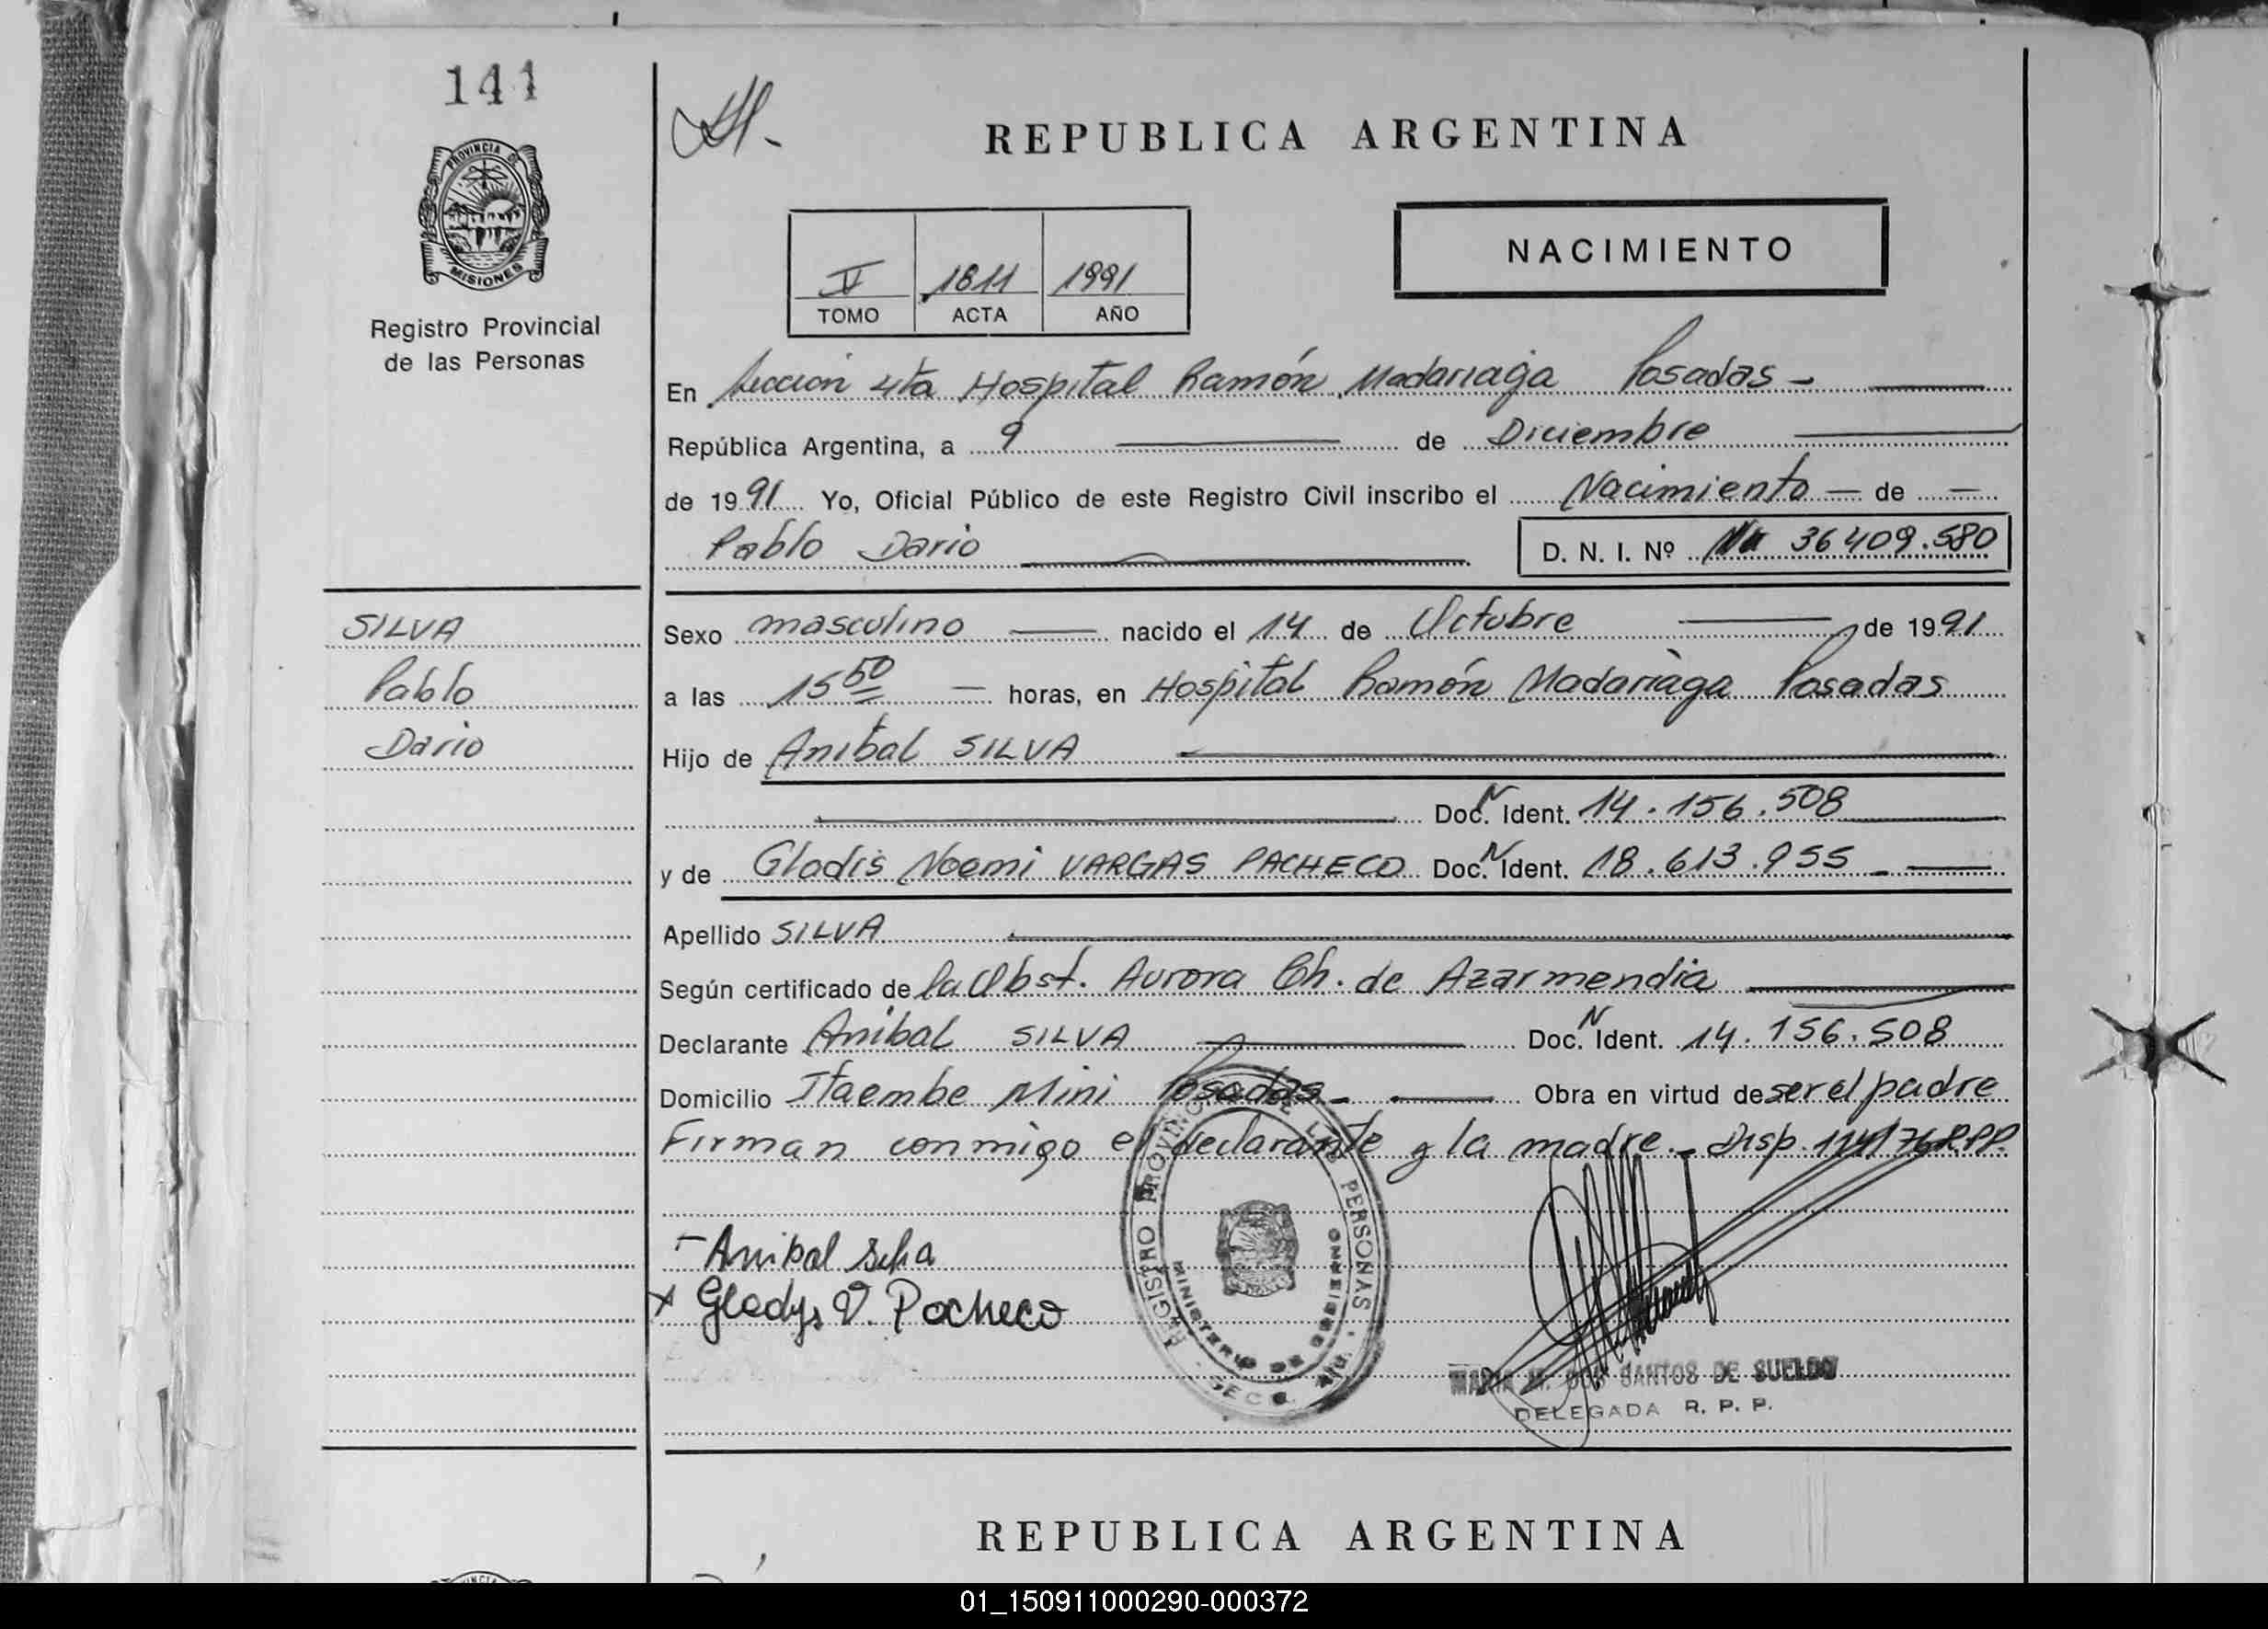 141
PROVINCIA DE
MISIONES
Registro Provincial
de las Personas
REPUBLICA ARGENTINA
NACIMIENTO
V 1811 1991
TOMO ACTA AÑO
En Sección 4ta Hospital Ramón Madariaga Posadas -
República Argentina, a 9 de Diciembre
de 1991 Yo, Oficial Público de este Registro Civil inscribo el Nacimiento — de —
Pablo Dario D. N. I. Nº 36409.580
SILVA
Pablo
Dario
Sexo masculino nacido el 14 de Octubre de 1991
a las 15 50 — horas, en Hospital Ramón Madariaga Posadas
Hijo de Anibal SILVA
Doc. N Ident. 14.156.508
y de Gladis Noemi VARGAS PACHECO Doc. N Ident. 18.613.955
Apellido SILVA
Según certificado de la Obst. Aurora Ch. de Azarmendia
Declarante Anibal SILVA Doc. N Ident. 14.156.508
Domicilio Itaembe Mini Posadas - Obra en virtud de ser el padre
Firman conmigo el declarante y la madre.- Disp. 114/76 R.P.P.
REGISTRO PROVINCIAL DE LAS PERSONAS
MINISTERIO DE GOBIERNO
- Anibal Silva
x Gladys V. Pacheco
MARIA M. DOS SANTOS DE SUELDO
DELEGADA R. P. P.
REPUBLICA ARGENTINA
01_150911000290-000372